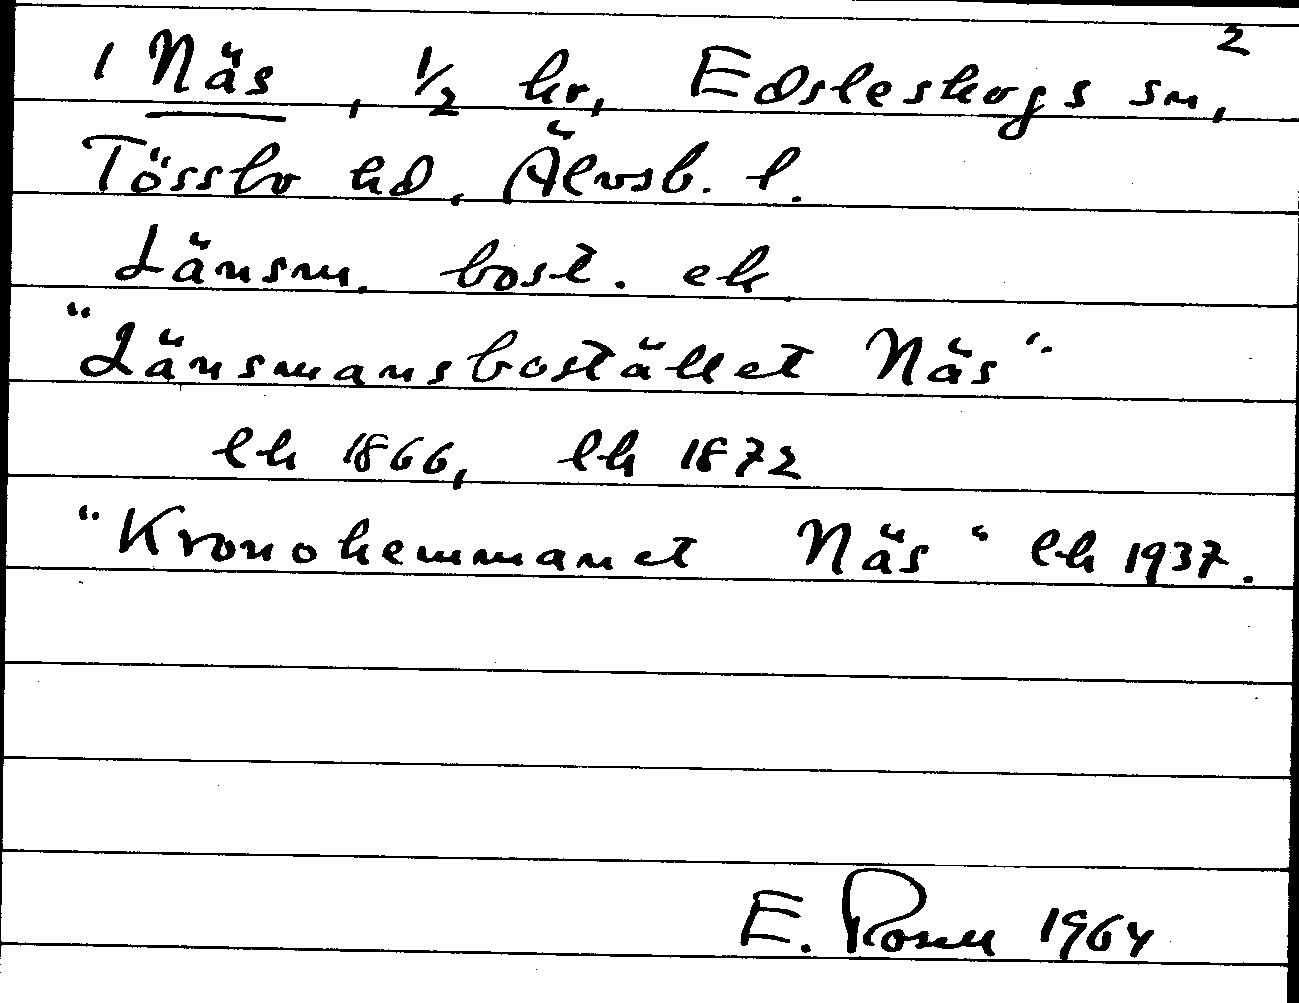 2
1 Näs, 1/2 kr, Edsleskogs sn,
Tössbo hd, Älvsb. l.
Länsm. bost. ek
"Länsmansbostället Näs"
lh 1866, lh 1872
"Kronohemmanet Näs" lh 1937.
E. Rosell 1964